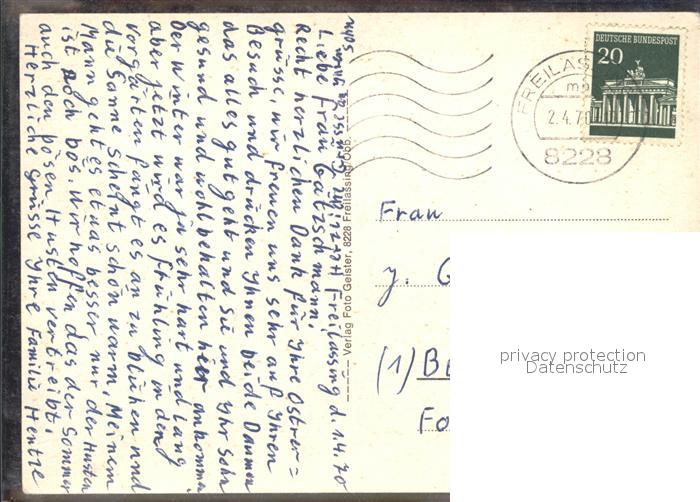 Freilassing d. 1.4.70
Liebe Frau Gatzschmann!
Recht herzlichen Dank für Ihre Ostrer=
grüsse, wir freuen uns sehr auf Ihren
Besuch und drücken Ihnen beide Daumen
das alles gut geht und Sie und Ihr Sohn
gesund und wohlbehalten hier ankommen
Der Winter war ja sehr hart und lang
aber jetzt wird es Frühling in den
Vorgärten fängt es an zu blühen und
die Sonne scheint schön warm, Meinem
Mann geht es etwas besser nur der Husten
ist noch bös. Wir hoffen das der Sommer
auch den bösen Husten vertreibt!
Herzliche Grüsse Ihre Familie Hentze
Verlag Foto Geister, 8228 Freilassing/Obb.
DEUTSCHE BUNDESPOST
20
FREILAS
2.4.70
8228
Frau
J. G
(1) Be
Fo
privacy protection
Datenschutz